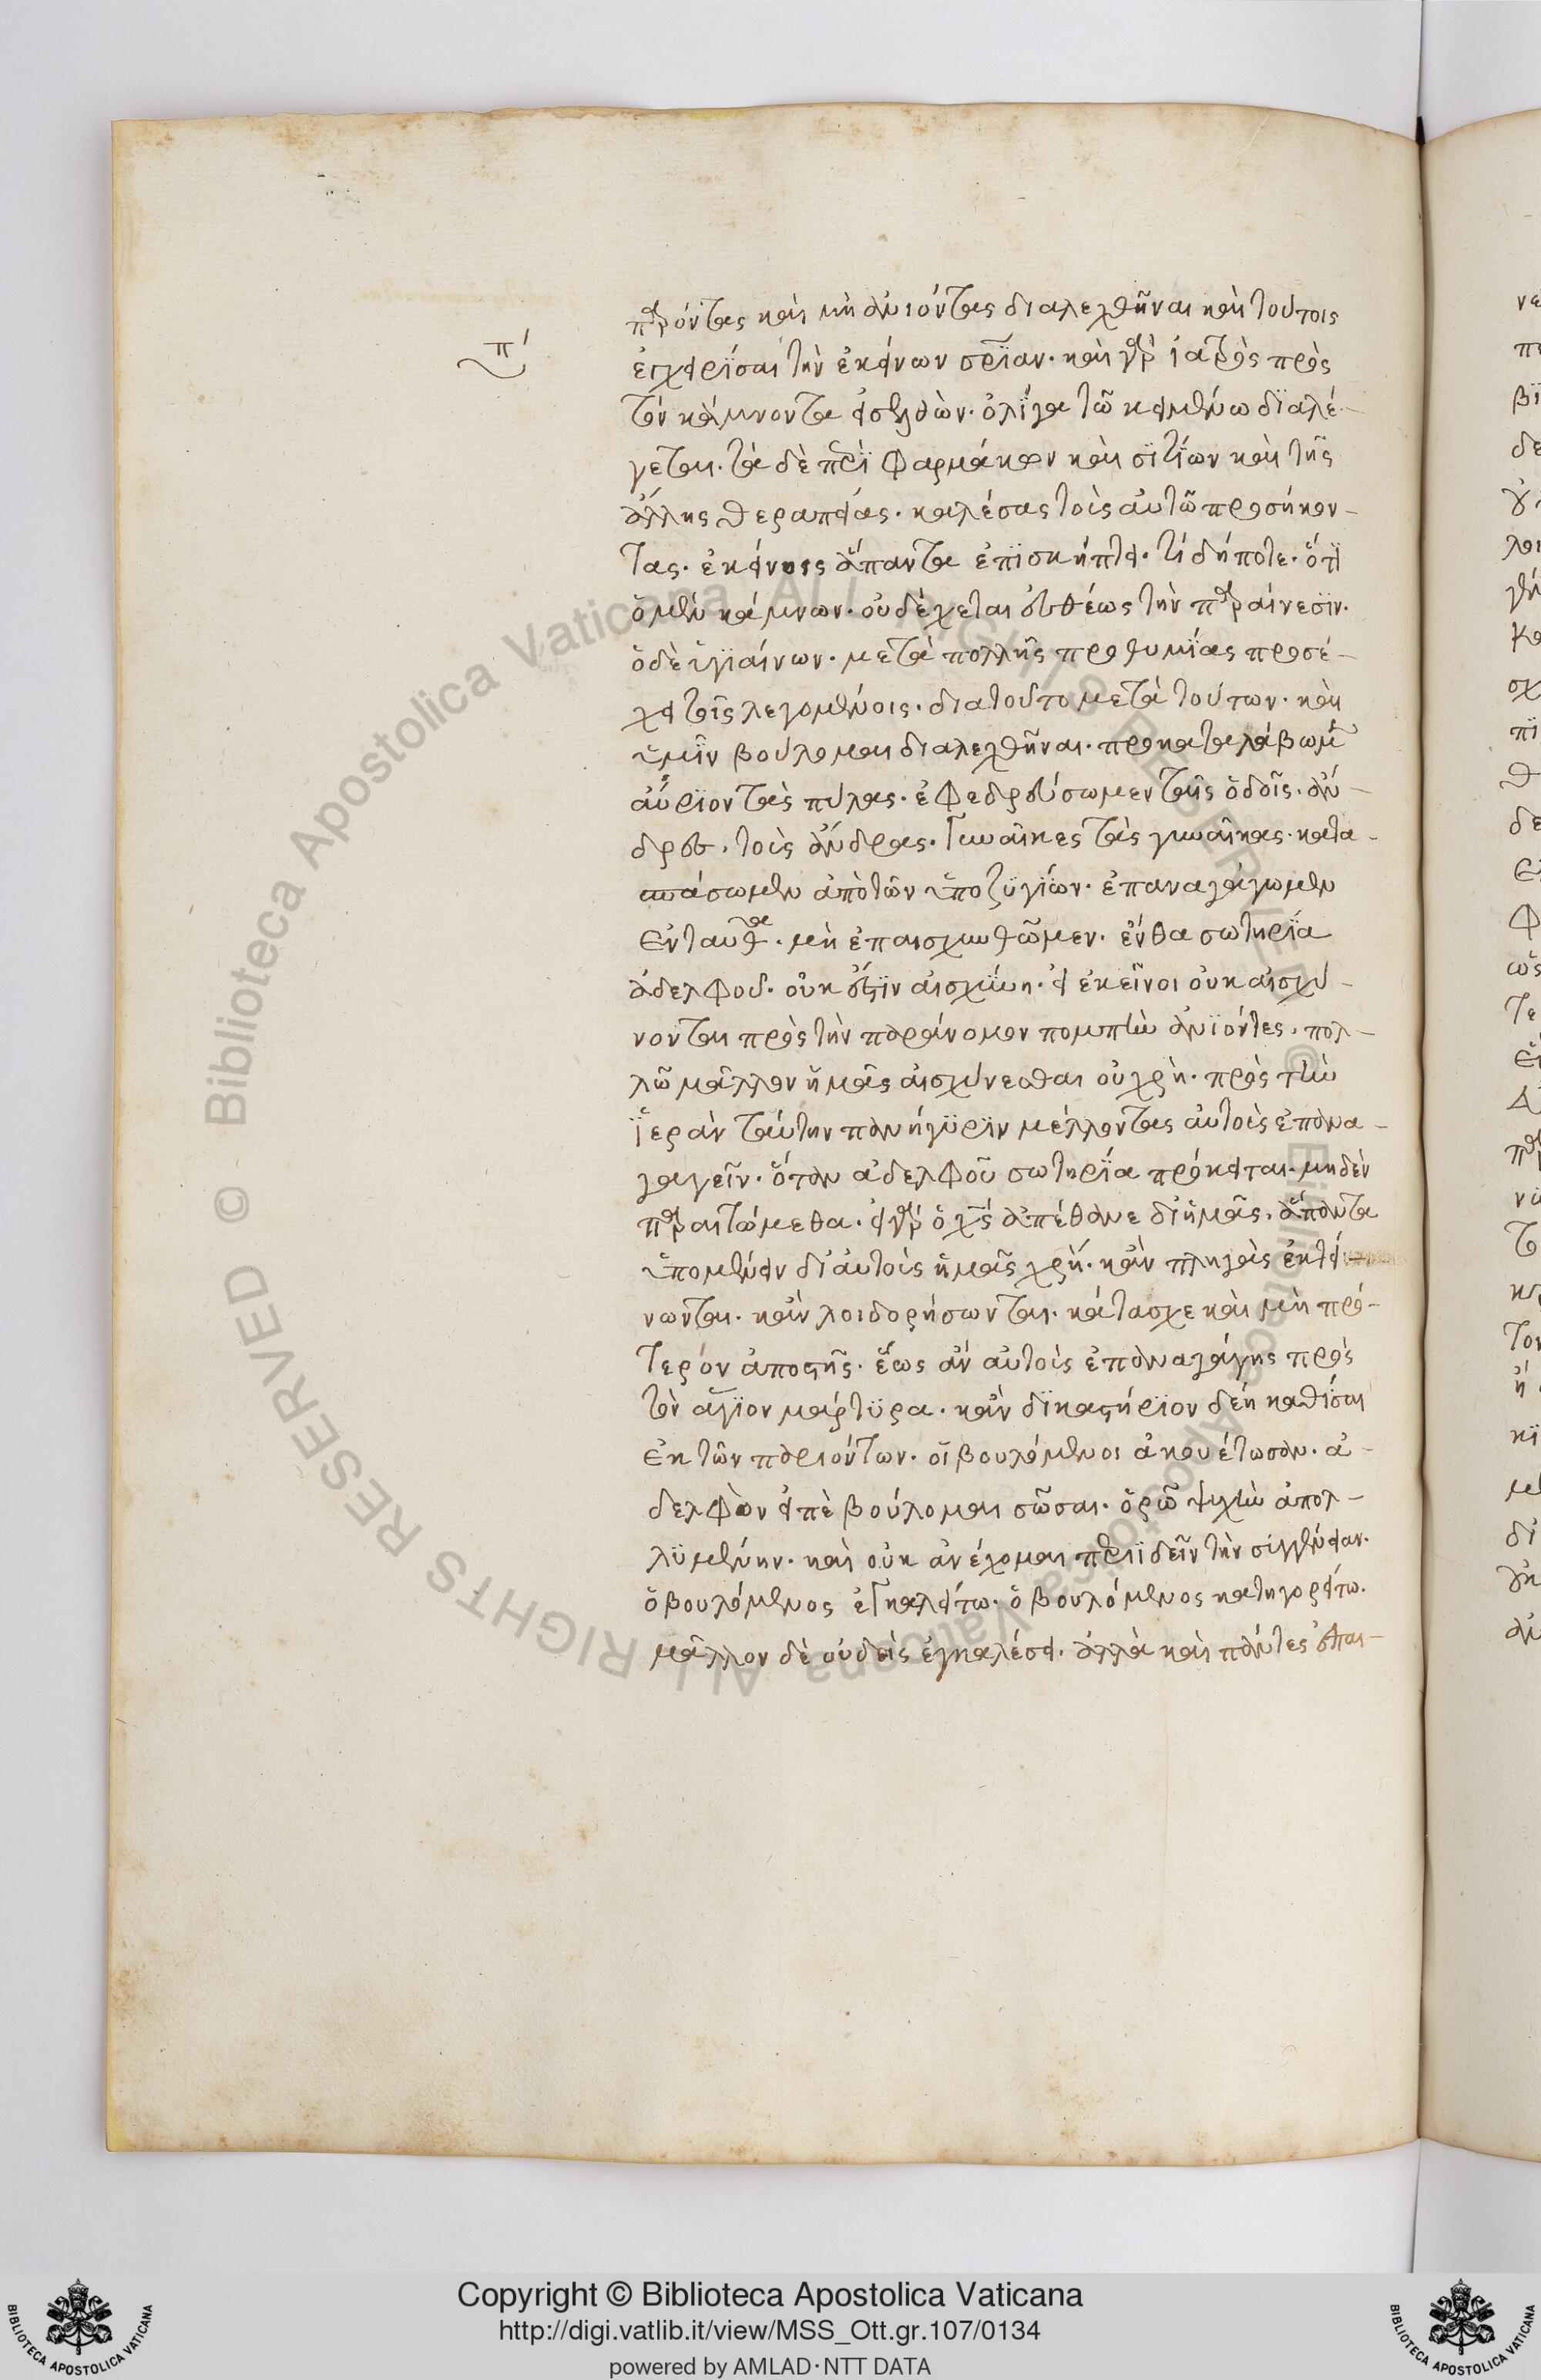 παρόντας καὶ μὴ ἀνιόντας διαλεχθῆναι καὶ τούτοις
π´
ἐγχειρῖσαι τὴν ἐκείνων σρίαν. καὶ γὰρ ἰατρὸς πρὸς
τὸν κάμνοντα εἰσελθὼν. ὀλίγα τῶ κειμένω διαλέ-
γεται. τὰ δὲ περὶ φαρμάκων καὶ σιτίων καὶ τῆς
ἄλλης θεραπείας. καλέσας τοὺς αὐτῶ προσήκον-
τας. ἐκείνοις ἅπαντα ἐπισκήπτει. τί δήποτε. ὅτι
ὁ μὲν κάμνων. οὐ δέχεται εὐθέως τὴν παραίνεσιν.
ὁ δὲ ὑγιαίνων. μετὰ πολλῆς προθυμίας προσέ-
χει τοῖς λεγομένοις. διατοῦτο μετὰ τούτων. καὶ
ὑμῖν βούλομαι διαλεχθῆναι. προκαταλάβωμεν
αὔριον τὰς πύλας. ἐφεδρεύσωμεν ταῖς ὁδοῖς. ἄν-
δρες. τοὺς ἄνδρας. γυναῖκες τὰς γυναῖκας. κατα-
σπάσωμεν ἀπὸ τῶν ὑποζυγίων. ἐπαναγάγωμεν
ἐνταῦθα. μὴ ἐπαισχυνθῶμεν. ἔνθα σωτηρία
ἀδελφοῦ. οὐκ ἔστιν αἰσχύνη. εἰ ἐκεῖνοι οὐκ αἰσχύ-
νονται πρὸς τὴν παράνομον πομπὴν ἀνιόντες. πολ-
λῶ μᾶλλον ἡμᾶς αἰσχύνεσθαι οὐ χρὴ. πρὸς τὴν
ἱερὰν ταύτην πανήγυριν μέλλοντας αὐτοὺς ἐπανα-
γαγεῖν. ὅταν ἀδελφοῦ σωτηρία πρόκειται. μηδὲν
παραιτώμεθα. εἰ γὰρ ὁ χς ἀπέθανε δι' ἡμᾶς. ἅπαντα
ὑπομένειν δι' αὐτοὺς ἡμᾶς χρή. κἂν πληγὰς ἐκτεί-
νωνται. κἂν λοιδορήσωνται. κάτασχε καὶ μὴ πρό-
τερον ἀποστῆς. ἕως ἂν αὐτοὺς ἐπαναγάγης πρὸς
τὸν ἅγιον μάρτυρα. κἂν δικαστήριον δέη καθίσαι
ἐκ τῶν παριόντων. οἱ βουλόμενοι ἀκουέτωσαν. ἀ-
δελφὸν εἰπὲ βούλομαι σῶσαι. ὁρῶ ψυχὴν ἀπολ-
λυμένην. καὶ οὐκ ἀνέχομαι περιιδεῖν τὴν συγγένειαν.
ὁ βουλόμενος ἐγκαλείτω. ὁ βουλόμενος κατηγορείτω.
μᾶλλον δὲ οὐδεὶς ἐγκαλέσει. ἀλλὰ καὶ πάντες ἐπαι-
© Biblioteca Apostolica Vaticana ALL RIGHTS RESERVED © Biblioteca Apostolica Vaticana ALL RIGHTS RESERVED
Copyright © Biblioteca Apostolica Vaticana
http://digi.vatlib.it/view/MSS_Ott.gr.107/0134
powered by AMLAD·NTT DATA
BIBLIOTECA APOSTOLICA VATICANA
BIBLIOTECA APOSTOLICA VATICANA